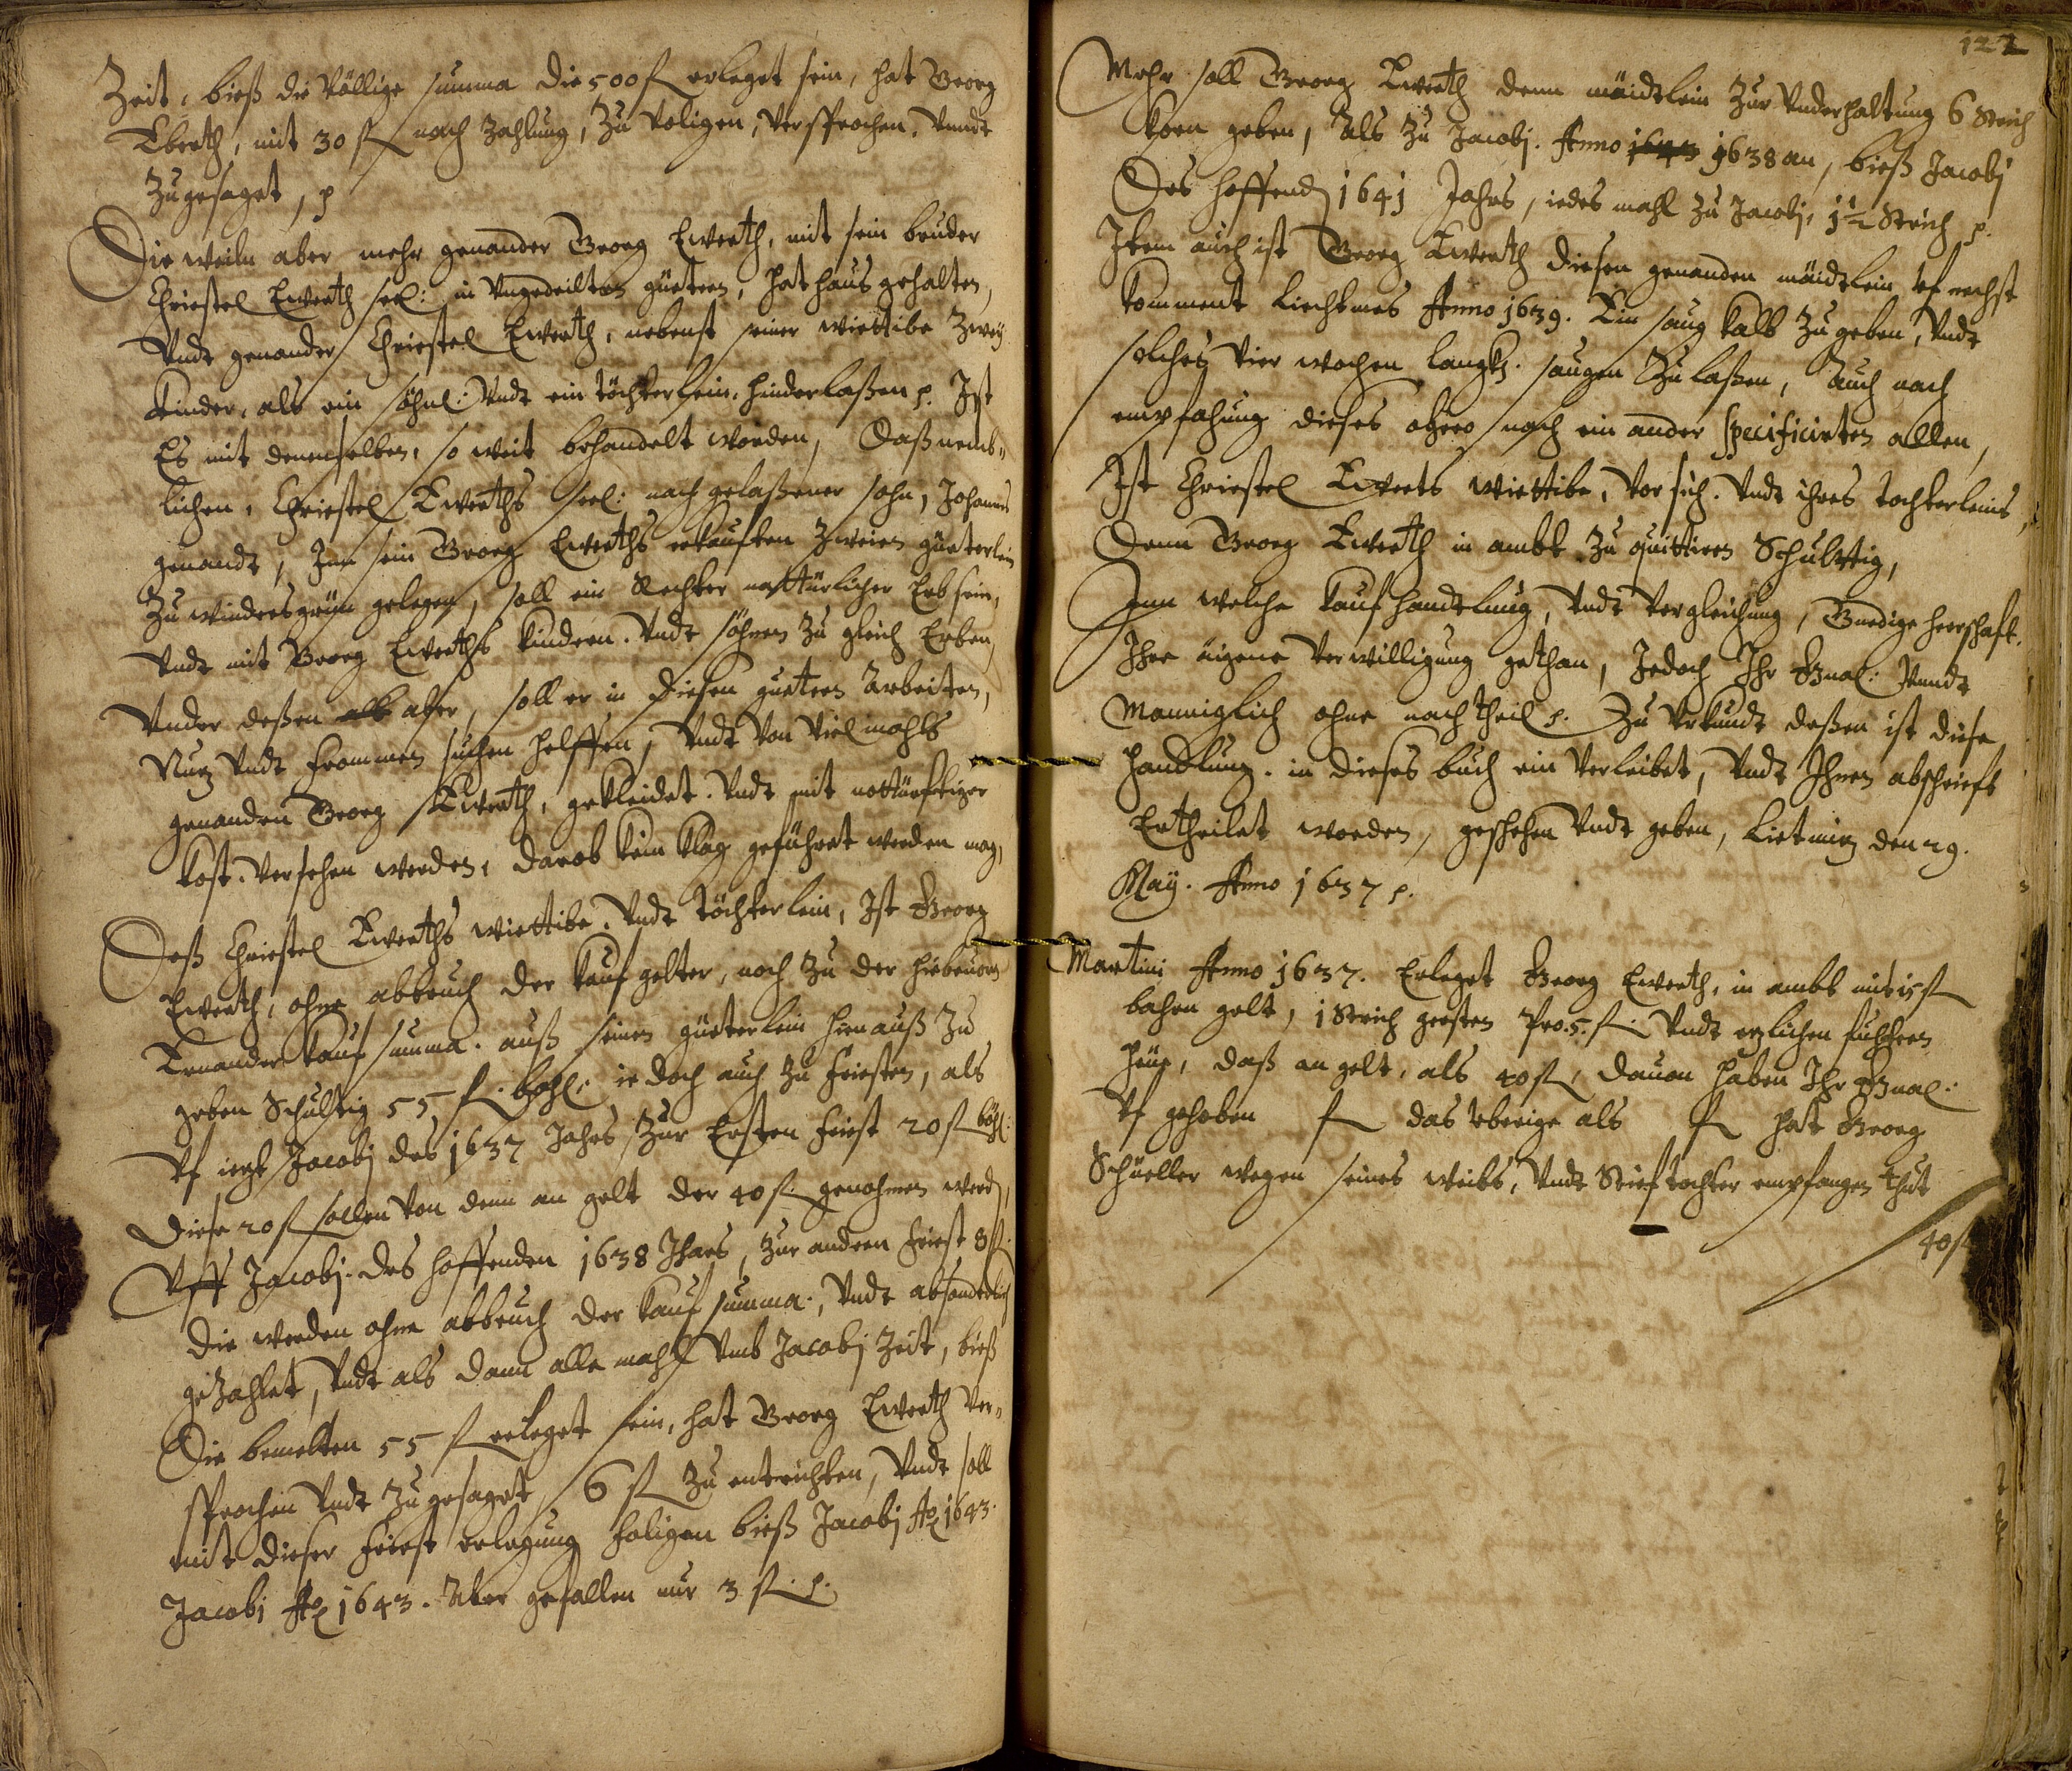 Zeit, bieß die völlige summa die 500 fl erleget sein, hat Georg
Ewerth, mit 30 fl nach Zahlung, Zu voligen, versprochen, vnndt
Zugesaget, p
Die weiln aber mehr genander Georg Ewerth, mit sein bruder
Christel Ewerth seel: in vngedeilten güetern, hat haus gehalten,
Vndt genander Christel Ewerth, nebenst seiner wiettibe Zweÿ
Kinder, als ein söhnl: Vndt ein töchterlein, hinderlaßen p. Ist
Es mit denenselben, so weit behandelt worden, Daß nemb„
lichen, Christel Ewerths seel: nach gelaßener sohn, Johannes
genandt, Inn sein Georg Ewerths erkauften Zweien güeterlein
Zu windersgrün gelegen, soll ein Rechter nattürlicher Erb sein,
Vndt mit Georg Ewerths kindern. Vndt söhnen Zu gleich Erben,
Vnder deßen aber, soll er in diesen guetern Arbeiten,
Nutz Vndt frommen suchen helffen, Vndt von Viel mahls
genanden Georg Ewerth, gekleidet. Vndt mit nottürftiger
Kost. versehen werden, darob kein klag geführet werden mag,
Deß Christel Ewerths wiettibe. Vndt töchterlein, Ist Georg
Ewerth, ohne abbruch der kauf gelter, noch Zu der hiebeuorn
Ernander kauf summa. auß seinen güeterlein hienauß Zu
geben Schultig 55 fl. böhl: ie doch auch Zu friesten, als
Vf iezt Jacobi des 1637 Jahrs, Zur Ersten friest 20 fl böhl:
Diese 20 fl sollen von denn an gelt der 40 fl. genohmen werd,
Vff Jacobi. des hoffenden 1638 Jhars, Zur andern friest 8 fl.
die werden ohne abbruch der kauf summa., Vndt absonderlich
geZahlet, Vndt als dann alle mahl vmb Jacobi Zeit, bieß
Die bemelten 55 fl erleget sein, hat Georg Ewerth ver„
sprochen Vndt Zugesaget, 6 fl Zu entrichten, Vndt soll
mit dieser friest erlegung folgen bieß Jacobi Ao 1643.
Jacobi Ao 1643. Aber gefallen nur 3 fl. p.
122
Mehr soll Georg Ewerth denn mäidtlein Zur vnderhaltung 6 Strich
korn geben, Als Zu Jacobi. Anno 1638 an, bieß Jacobi
Des hoffend 1641 Jahrs, iedes mahl Zu Jacobi, 1½ Strich p.
Item auch ist Georg Ewerth diesen genanden mäidtlein, vf nechst
komment Liechtmes Anno 1639. Ein saug kalb Zu geben, Vndt
solches vier wochen langk. saugen Zu laßen, Auch nach
empfahung dieses ohero nach ein ander specificirten allen,
Ist Christel Ewerts wiettibe, vor sich. Vndt ihres tochterleins,
Denn Georg Ewerth in ambt Zu quittiren Schultig,
Inn welche kauf handtlung, Vndt vergleichung, Gnedige herschaft.
Ihre äigene verwilligung gethan, Jedoch Ihr Gnal: Vnndt
Manniglich ohne nachtheil p. Zu Vrkundt deßen ist diese
handtlung. in dieses buch ein verleibet, Vndt Ihnen abschrieft
Ertheilet worden, geschehen Vndt geben, Lietmitz den 29.
Maÿ. Anno 1637 p.
Martini Anno 1637. Erleget Georg Ewerth, in ambt mit 15 fl
bahren gelt, 1 Strich gersten Pro. 5. fl. Vndt etzlichen fuhrern
heüe, daß an gelt, als 40 fl, dauon haben Ihr Gnal:
Vf gehoben fl das vberige als fl hat Georg
Schüeller wegen seines weibs, Vndt Stieftochter empfangen thut
40 fl